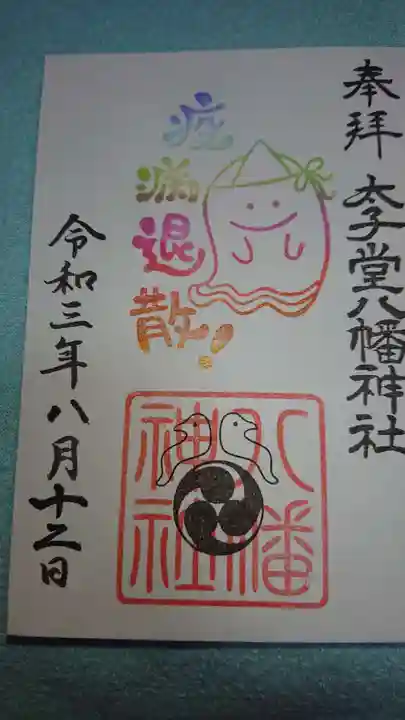 奉拝
太子堂八幡神社
疫病退散!
八幡
神社
令和三年八月十二日